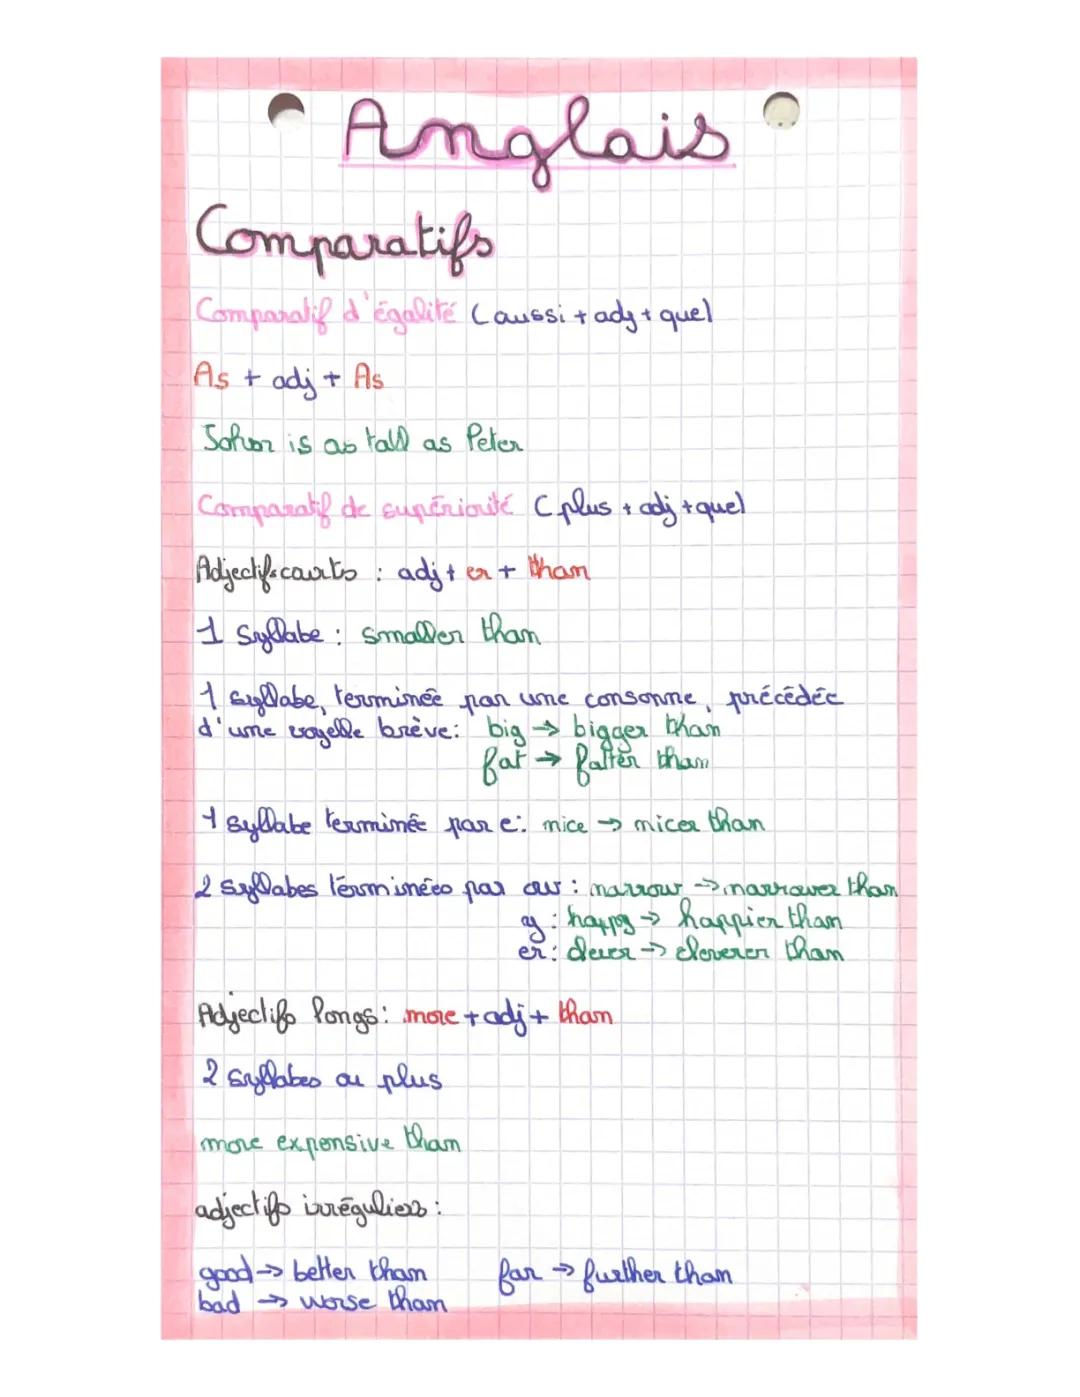 Anglais
Comparatifs
Comparatif d'égalité (aussi + adj + que)
As + adj + As
John is as tall as Peter
Comparatif de supériorité (plus + adj + que)
Adjectifs courts : adj + er + than
1 syllabe : smaller than
1 syllabe, terminée par une consonne, précédée
d'une voyelle brève : big → bigger than
fat → fatter than
1 syllabe terminée par e : nice → nicer than
2 syllabes terminées par ow : narrow → narrower than
y : happy → happier than
er : clever → cleverer than
Adjectifs longs : more + adj + than
2 syllabes ou plus
more expensive than
adjectifs irréguliers :
good → better than far → further than
bad → worse than